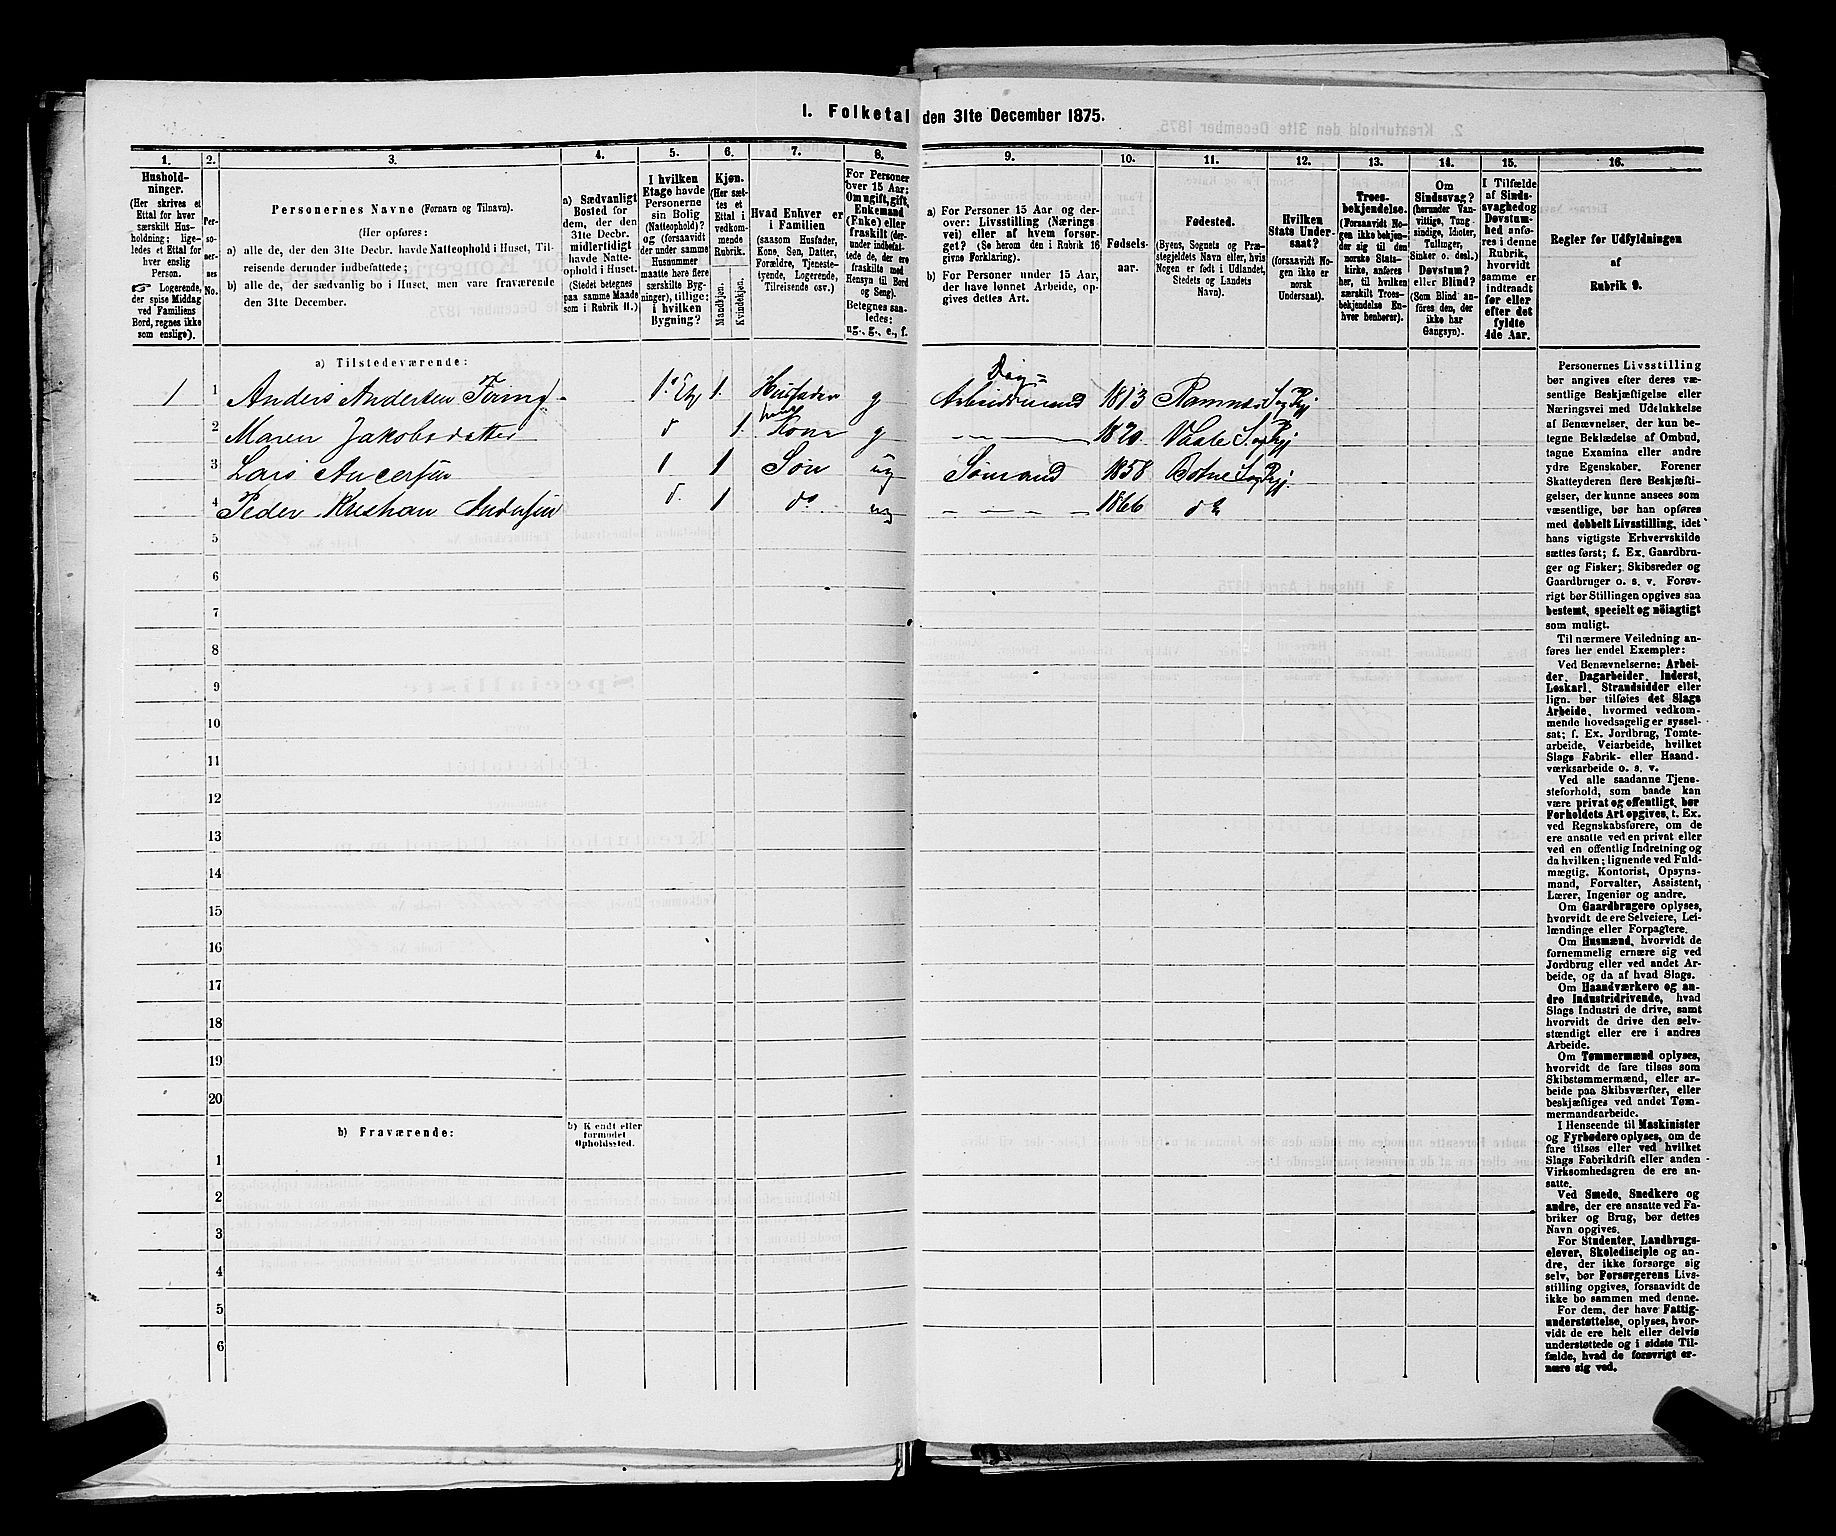 1. Folketal den 31te December 1875.
1. 2. 3. 4. 5. 6. 7. 8. 9. 10. 11. 12. 13. 14. 15. 16.
Hushold-
ninger.
(Her skrives et
Ettal for hver
særskilt Hus-
holdning; lige-
ledes et Ettal for
hver enslig
Person.
☞ Logerende,
der spise Middag
ved Familiens
Bord, regnes ikke
som enslige).
Per-
so-
ner-
nes
No.
Personernes Navne (Fornavn og Tilnavn).
(Her opføres:
a) alle de, der den 31te Decbr. havde Natteophold i Huset, Til-
reisende derunder indbefattede;
b) alle de, der sædvanlig bo i Huset, men vare fraværende
den 31te December.
a) Sædvanligt
Bosted for
dem, der den
31te Decbr.
midlertidigt
havde Natte-
ophold i Huset.
(Stedet betegnes
paa samme Maade
som i Rubrik 11.)
I hvilken
Etage havde
Personerne
sin Bolig
(Natteophold)?
og (forsaavidt
der under samme
Husnummer
maatte høre flere
særskilte Byg-
ninger), tillige:
i hvilken
Bygning?
Kjøn.
(Her sæt-
tes et
Ettal i
vedkom-
mende
Rubrik.
Mandkjøn.
Kvindekjøn.
Hvad Enhver er
i Familien
(saasom Husfader,
Kone, Søn, Datter,
Forældre, Tjeneste-
tyende, Logerende,
Tilreisende osv.)
For Personer
over 15 Aar:
Om ugift, gift,
Enkemand
(Enke) eller
fraskilt (der-
under indbefat-
tede de, der ere
fraskilte med
Hensyn til Bord
og Seng).
Betegnes saa-
ledes:
ug., g., e., f.
a) For Personer 15 Aar og der-
over: Livsstilling (Nærings
vei) eller af hvem forsør-
get? (Se herom den i Rubrik 16
givne Forklaring).
b) For Personer under 15 Aar,
der have lønnet Arbeide, op-
gives dettes Art.
Fødsels-
aar.
Fødested.
(Byens, Sognets og Præ-
stegjeldets Navn eller, hvis
Nogen er født i Udlandet,
Stedets og Landets
Navn).
Hvilken
Stats Under-
saat?
(forsaavidt No-
gen ikke er
norsk
Undersaat).
Troes-
bekjendelse.
(Forsaavidt No-
gen ikke bekjen-
der sig til den
norske Stats-
kirke, anføres
her, til hvilken
særskilt Troes-
bekjendelse En-
hver henhører).
Om
Sindssvag?
(herunder Van-
vittige, Tung-
sindige, Idioter,
Tullinger,
Sinker o. desl.)
Døvstum?
eller Blind?
(Som Blind an-
føres den, der
ikke har
Gangsyn).
I Tilfælde
af Sinds-
svaghed og
Døvstum-
hed anfø-
res i denne
Rubrik,
hvorvidt
samme er
indtraadt
før eller
efter det
fyldte
4de Aar.
Regler for Udfyldningen
af
Rubrik 9.
a) Tilstedeværende:
1 1 Anders Andersen 1. Etg 1. Husfader g Dag= Arbeidsmand 1813 Ramnæs S og Pgj
2 Maren Jakobsdatter d 1. hans Kone g — — — 1820 Vaale S. og Pgj
3 Lars Andersen 1. 1 Søn ug Sømand 1858 Botne S og Pgj.
4 Peder Kristian Andersen d. 1 do ug — — — 1866 do
5
6
7
8
9
10
11
12
13
14
15
16
17
18
19
20
b) Fraværende:
b) Kendt eller
formodet
Opholdssted.
1
2
3
4
5
6
Personernes Livsstilling
bør angives efter deres væ-
sentlige Beskjæftigelse eller
Næringsvei med Udelukkelse
af Benævnelser, der kun be-
tegne Beklædelse af Ombud,
tagne Examina eller andre
ydre Egenskaber. Forener
Skatteyderen flere Beskjæfti-
gelser, der kunne ansees som
væsentlige, bør han opføres
med dobbelt Livsstilling, idet
hans vigtigste Erhvervskilde
sættes først; f. Ex. Gaardbru-
ger og Fisker; Skibsreder og
Gaardbruger o. s. v. Forøv-
rigt bør Stillingen opgives saa
bestemt, specielt og nöiagtigt
som muligt.
Til nærmere Veiledning an-
føres her endel Exempler:
Ved Benævnelserne: Arbei-
der, Dagarbeider, Inderst,
Løskarl, Strandsidder eller
lign. bør tilføies det Slags
Arbeide, hvormed vedkom-
mende hovedsagelig er syssel-
sat; f. Ex. Jordbrug, Tomte-
arbeide, Veiarbeide, hvilket
Slags Fabrik- eller Haand-
værksarbeide o. s. v.
Ved alle saadanne Tjene-
steforhold, som baade kan
være privat og offentligt, bør
Forholdets Art opgives, t. Ex.
ved Regnskabsførere, om de
ere ansatte ved en privat eller
ved en offentlig Indretning og
da hvilken; lignende ved Fuld-
mægtig, Kontorist, Opsyns-
mand, Forvalter, Assistent,
Lærer, Ingeniør og andre.
Om Gaardbrugere oplyses,
hvorvidt de ere Selveiere, Lei-
lændinge eller Forpagtere.
Om Husmænd, hvorvidt de
fornemmelig ernære sig ved
Jordbrug eller ved andet Ar-
beide, og da af hvad Slags.
Om Haandværkere og an-
dre Industridrivende, hvad
Slags Industri de drive, samt
hvorvidt de drive den selv-
stændigt eller ere i andres
Arbeide.
Om Tømmermænd oplyses,
hvorvidt de fare tilsøs som
Skibstømmermænd, eller ar-
beide paa Skibsværfter, eller
beskjæftiges ved andet Tøm-
mermandsarbeide.
I Henseende til Maskinister
og Fyrbødere oplyses, om de
fare tilsøs eller ved hvilket
Slags Fabrikdrift eller anden
Virksomhedsgren de ere an-
satte.
Ved Smede, Snedkere og
andre, der ere ansatte ved Fa-
briker og Brug, bør dettes
Navn opgives.
For Studenter, Landbrugs-
elever, Skoledisciple og an-
dre, der ikke forsørge sig
selv, bør Forsørgerens Livs-
stilling opgives, forsaavidt de
ikke bo sammen med denne.
For dem, der have Fattig-
understøttelse, oplyses, hvor-
vidt de ere helt eller delvis
understøttede og i sidste Til-
fælde, hvad de forøvrigt er-
nære sig ved.